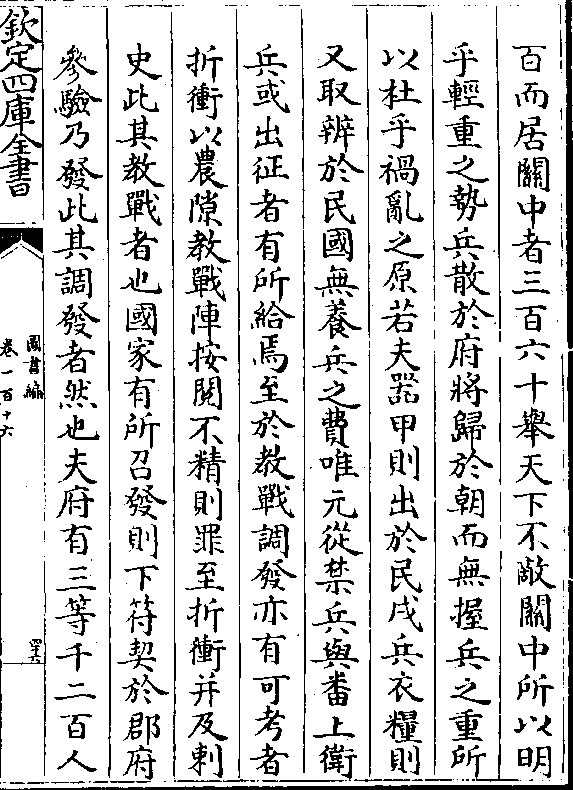 百而居關中者三百六十舉天下不敵關中所以明
乎輕重之勢兵散於府將歸於朝而無握兵之重所
以杜乎禍亂之原若夫器甲則出於民戍兵衣糧則
又取辨於民國無養兵之費唯元從禁兵與番上衛
兵或出征者有所給焉至於教戰調發亦有可考者
折衝以農隙教戰陣按閱不精則罪至折衝并及刺
史此其教戰者也國家有所召發則下符契於郡府
參驗乃發此其調發者然也夫府有三等千二百人
欽定四庫全書
圖書編
卷一百十六